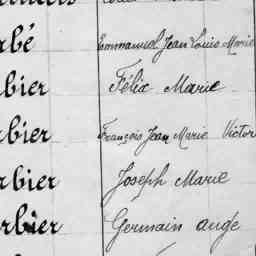 rbé Emmanuel Jean Louis Marie
bier Félix Marie
bier François Jean Marie Victor
rbier Joseph Marie
rbier Germain ange